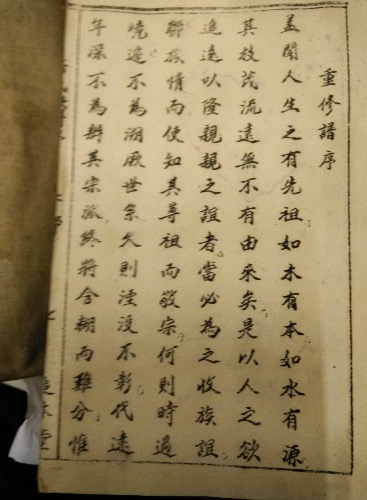 重修譜序
盖聞人生之有先祖如木有本如水有源
其枝茂流遠無不有由來矣是以人之欲
追遠以隆親親之誼者當必為之收族誼
聯族情而使知其尊祖而敬宗何則時過
境遷不為溯厥世系久則湮沒不彰代遠
年深不為辨其宗派終將令糊而難分惟